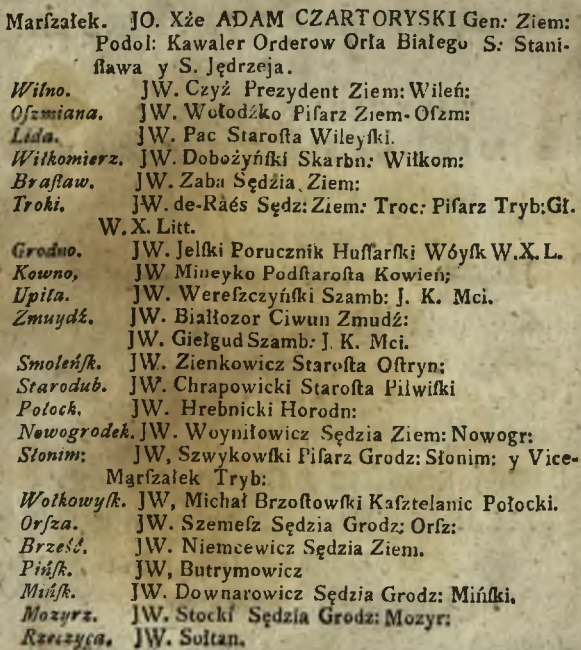 Marſzałek. JO. Xże ADAM CZARTORYSKI Gen: Ziem:
Podol: Kawaler Orderow Orła Białego S. Stani-
ſława y S. Jędrzeja.
Wilno. JW. Czyż Prezydent Ziem: Wileń:
Oſzmiana. JW. Wołodźko Piſarz Ziem- Oſzm:
Lida. JW. Pac Staroſta Wileyſki.
Wiłkomierz. JW. Dobożyńſki Skarbn: Wiłkom:
Braſław. JW. Zaba Sędzia Ziem:
Troki. JW. de-Ráés Sędz: Ziem: Troc: Piſarz Tryb: Gł.
W. X. Litt.
Grodno. JW. Jelſki Porucznik Huſſarſki Wóyſk W.X.L.
Kowno, JW Mineyko Podſtaroſta Kowień;
Upita. JW. Wereſzczyńſki Szamb: J. K. Mci.
Zmuydź. JW. Białłozor Ciwun Zmudź:
JW. Giełgud Szamb: J. K. Mci.
Smoleńſk. JW. Zienkowicz Staroſta Oſtryn;
Starodub. JW. Chrapowicki Staroſta Pilwiſki
Połock, JW. Hrebnicki Horodn:
Nowogrodek. JW. Woyniłowicz Sędzia Ziem: Nowogr:
Słonim: JW, Szwykowſki Piſarz Grodz: Słonim: y Vice-
Mąrſzałek Tryb:
Wołkowyſk. JW, Michał Brzoſtowſki Kaſztelanic Połocki.
Orſza. JW. Szemeſz Sędzia Grodz: Orſz:
Brześć. JW. Niemcewicz Sędzia Ziem.
Pińſk. JW, Butrymowicz
Mińſk. JW. Downarowicz Sędzia Grodz: Mińſki,
Mozyrz. JW. Stocki Sędzia Grodz: Mozyr:
Rzeczyca. JW. Sołtan.